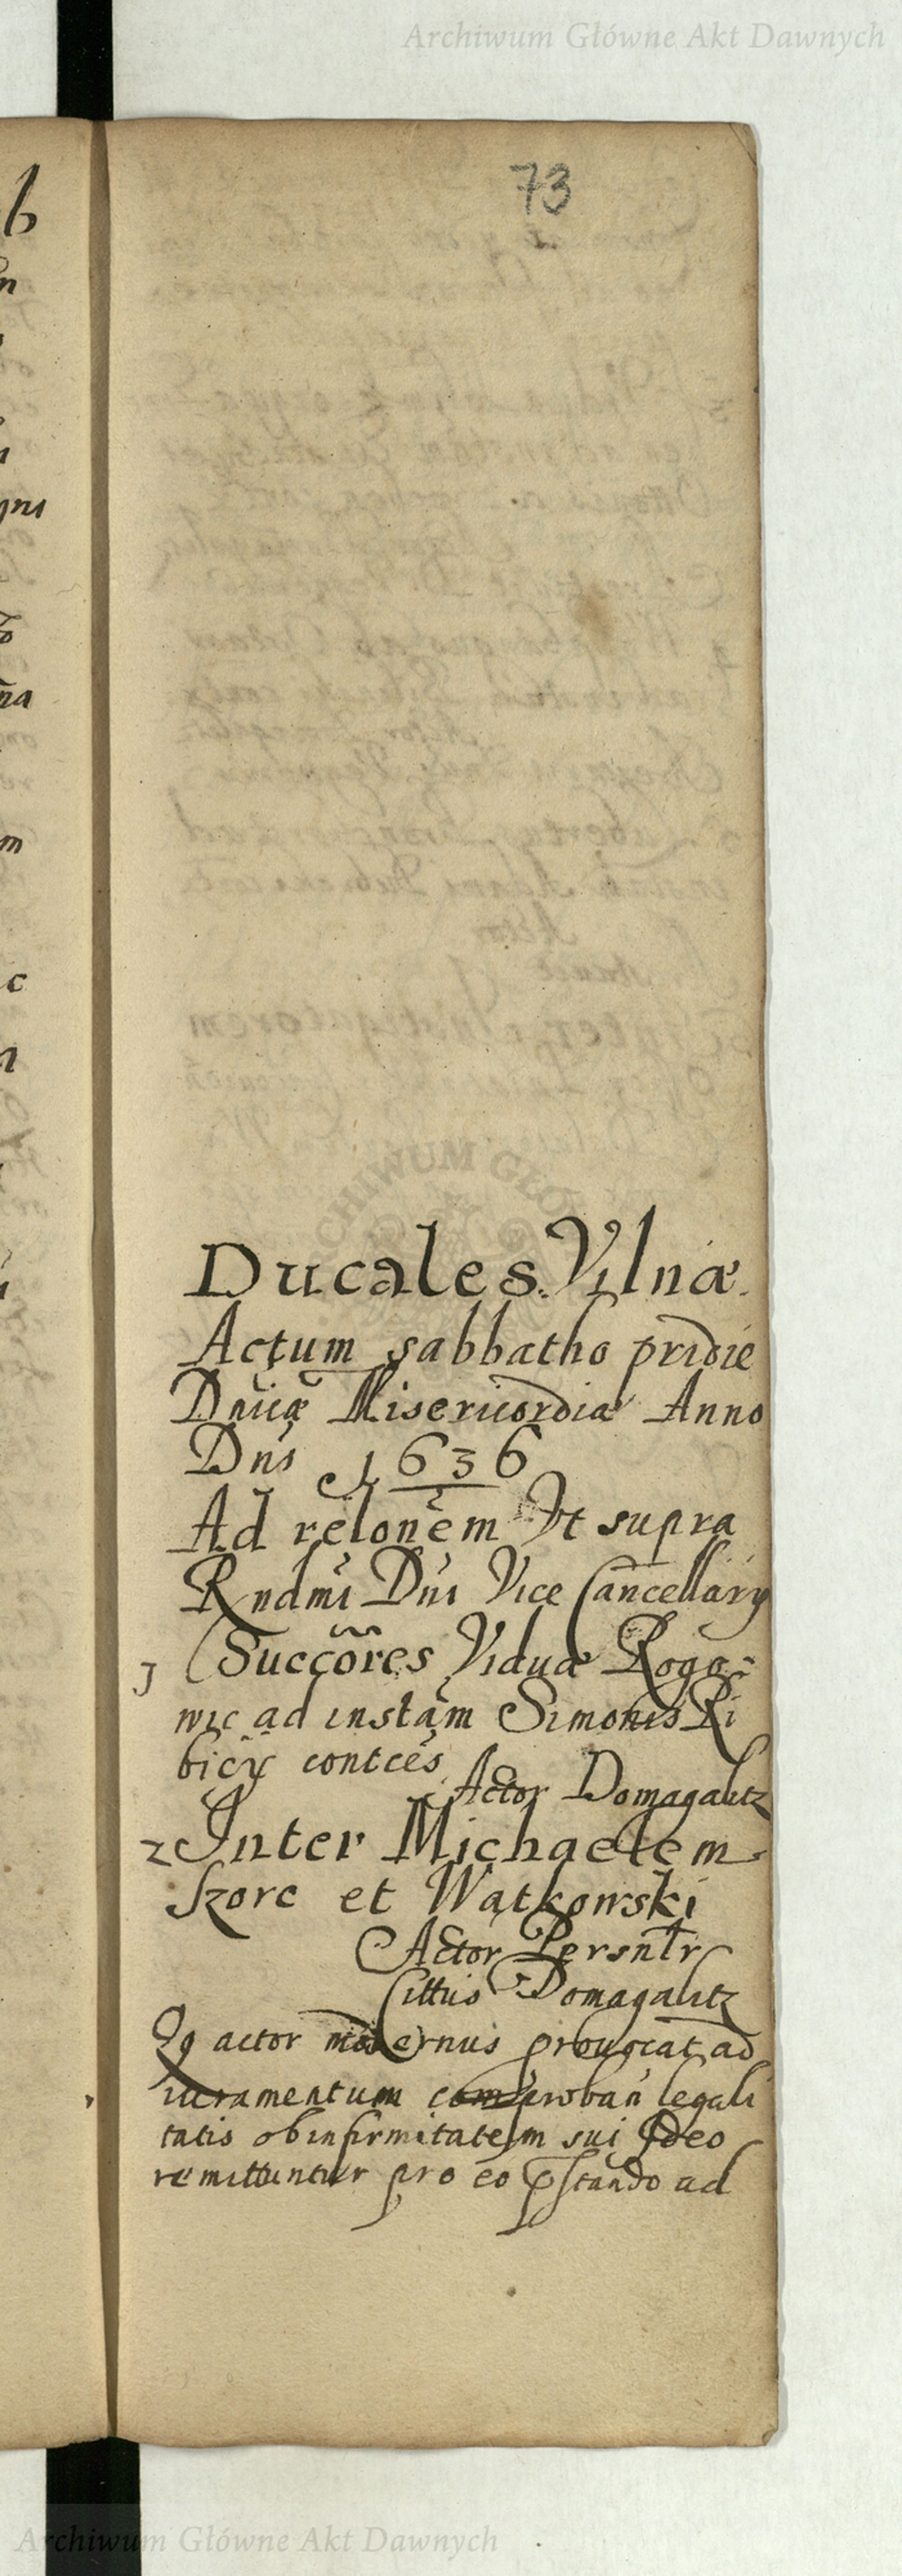 Archiwum Główne Akt Dawnych
73
Ducales Vilnæ.
Actum sabbatho pridie
Dnicæ Misericordia Anno
Dni 1636
Ad relonem Vt supra
Rndmi Dni Vice Cancellarÿ
1 Succores Viduæ Rogo=
wic ad instam Simonis Ri
bicÿ contces
Actor Domagalitz
2 Inter Michaelem
Szorc et Watkowski
Actor Persnlr
Cittus Domagalitz
Qq actor modernus provocat ad
iuramentum comproban legali
tatis ob infirmitatem sui Ideo
remittuntur pro eo pstando ad
Archiwum Główne Akt Dawnych